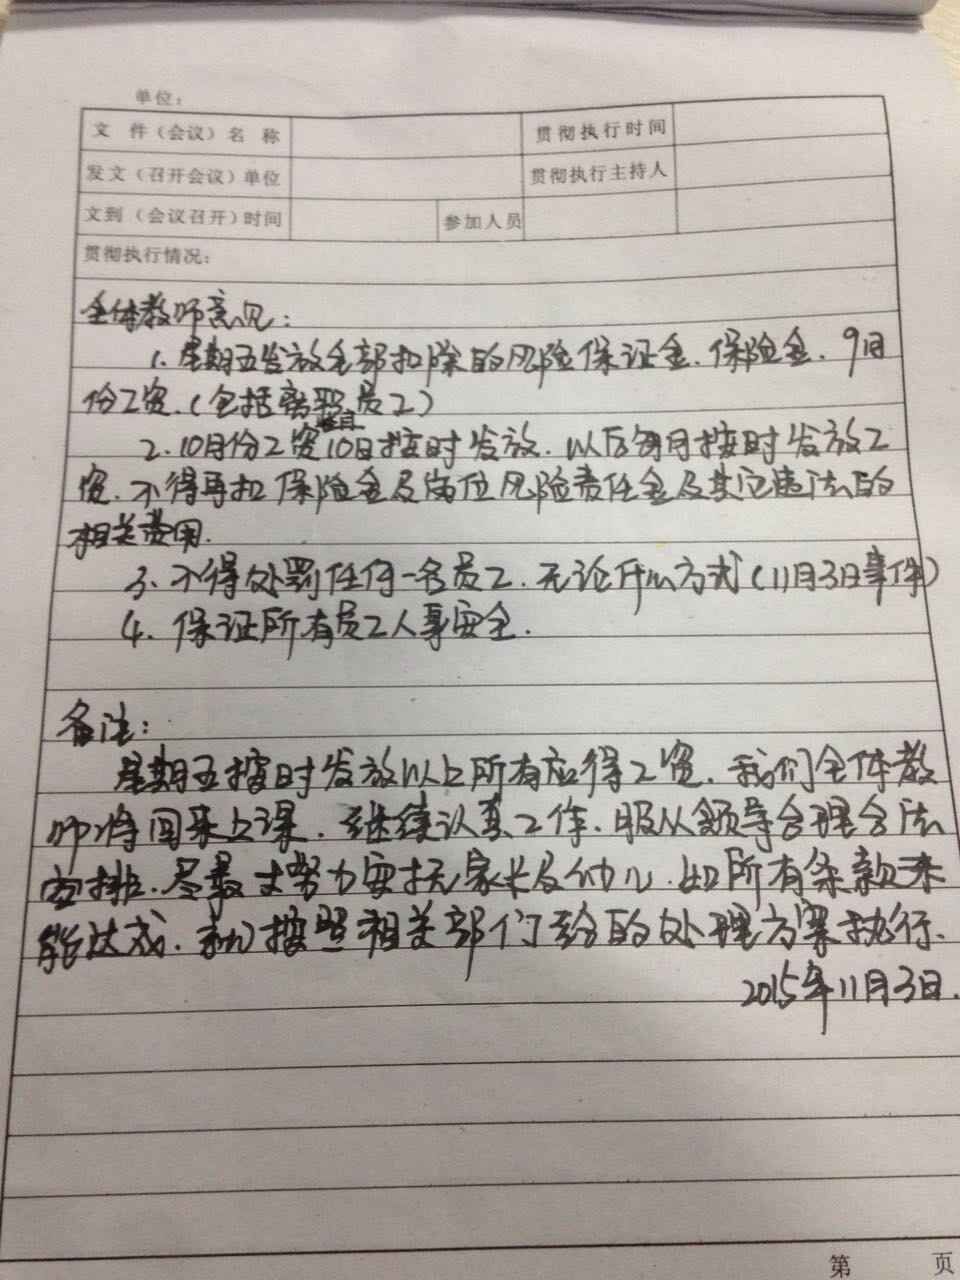 单位：
文 件（会议）名 称 贯彻执行时间
发文（召开会议）单位 贯彻执行主持人
文到（会议召开）时间 参加人员
贯彻执行情况：
全体教师意见：
1. 星期五发放全部扣除的风险保证金、保险金、9月
份工资.（包括离职员工）
2. 10月份工资10日按时发放. 以后每月按时发放工
资. 不得再扣保险金及岗位风险责任金及其它违法的
相关费用.
3. 不得处罚任何一名员工. 无论什么方式（11月3日事件）
4. 保证所有员工人事安全.
备注：
星期五按时发放以上所有应得工资. 我们全体教
师将回来上课. 继续认真工作. 服从领导合理合法
安排. 尽最大努力安抚家长及幼儿. 如所有条款未
能达成. 就按照相关部门给的处理方案执行.
2015年11月3日.
第 页